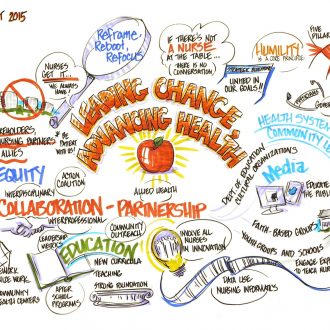 2015
REFRAME,
REBOOT,
REFOCUS
NURSES
GET IT...
WE ALWAYS
HAVE!
IF THERE'S NOT
A NURSE
AT THE TABLE...
THERE IS NO
CONVERSATION!
HUMILITY
IS A CORE PRINCIPLE
FIVE
PILLAR
STRATEGIC
UNITED IN
OUR GOALS!!
GOA
LEADING CHANGE,
ADVANCING HEALTH
HEALTH SYSTEM
COMMUNITY
NURSING PARTNERS
ALLIES
EQUITY
INTERDISCIPLINARY
ACTION
COALITION
ALLIED HEALTH
DEPT. OF EDUCATION
CULTURAL ORGANIZATIONS
Media
EDUCATE
THE PUBLI
COLLABORATION - PARTNERSHIP
INTERPROFESSIONAL
LEADERSHIP
COMMUNITY
OUTREACH
EDUCATION
NEW CURRICULA
TEACHING
STRONG FOUNDATION
INVOLVE ALL
NURSES
IN INNOVATION
FAITH-BASED GROUPS
YOUTH GROUPS AND SCHOOLS
ENGAGE
TO TEACH
DATA USE
NURSING INFORMATICS
AFTER
SCHOOL
PROGRAMS
COMMUNITY
HEALTH CENTERS